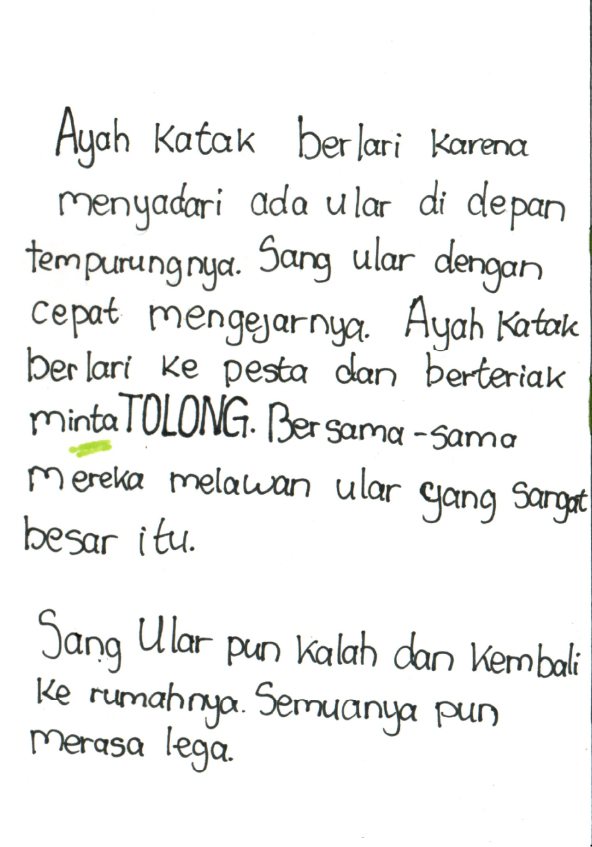 Ayah Katak berlari karena
menyadari ada ular di depan
tempurungnya. Sang ular dengan
cepat mengejarnya. Ayah Katak
berlari ke pesta dan berteriak
minta TOLONG. Bersama-sama
mereka melawan ular yang sangat
besar itu.
Sang Ular pun kalah dan kembali
ke rumahnya. Semuanya pun
merasa lega.